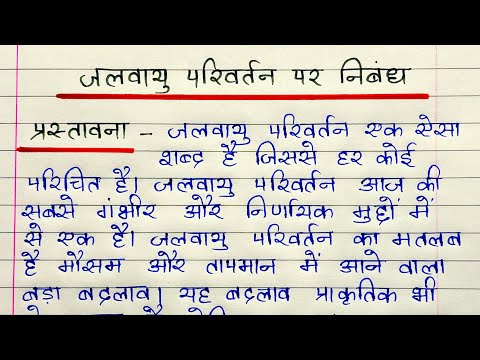 जलवायु परिवर्तन पर निबंध
प्रस्तावना - जलवायु परिवर्तन एक ऐसा
शब्द है जिससे हर कोई
परिचित है। जलवायु परिवर्तन आज की
सबसे गंभीर और निर्णायक मुद्दों में
से एक है। जलवायु परिवर्तन का मतलब
है मौसम और तापमान में आने वाला
बड़ा बदलाव। यह बदलाव प्राकृतिक भी